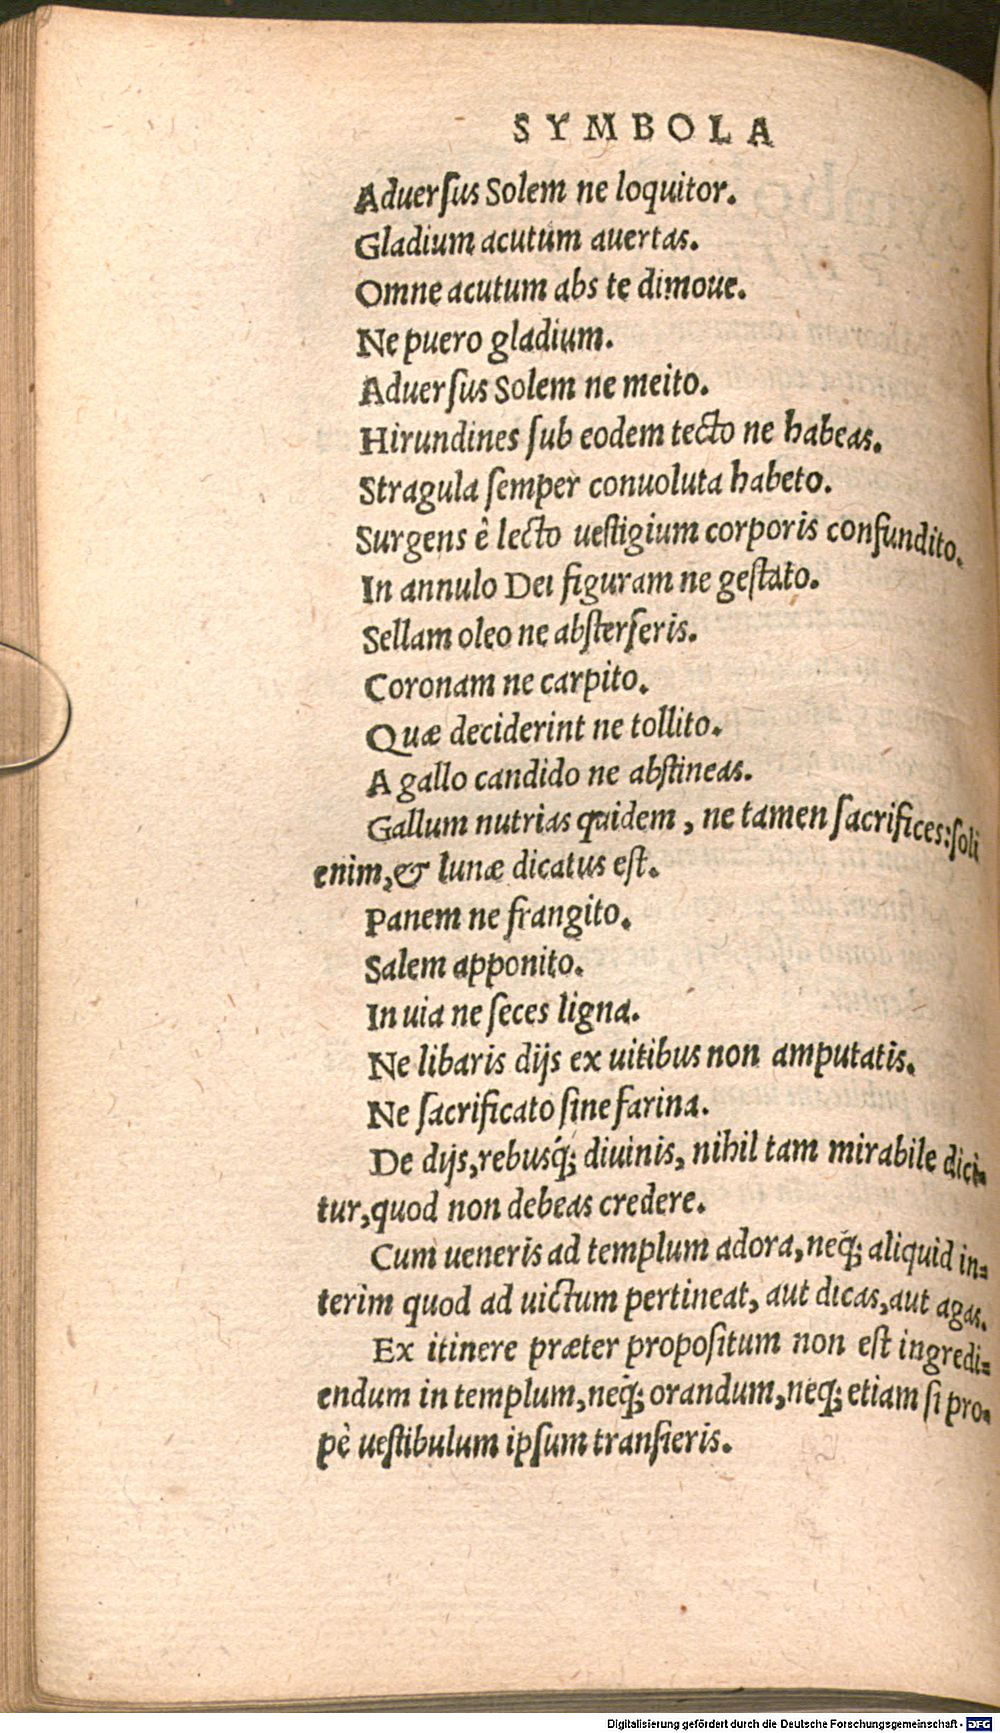 SYMBOLA
Aduerſus Solem ne loquitor.
Gladium acutum auertas.
Omne acutum abs te dimoue.
Ne puero gladium.
Aduerſus Solem ne meito.
Hirundines ſub eodem tecto ne habeas.
Stragula ſemper conuoluta habeto.
Surgens è lecto ueſtigium corporis confundito.
In annulo Dei figuram ne geſtato.
Sellam oleo ne abſterſeris.
Coronam ne carpito.
Quæ deciderint ne tollito.
A gallo candido ne abſtineas.
Gallum nutrias quidem, ne tamen ſacrifices: ſoli
enim, & lunæ dicatus eſt.
Panem ne frangito.
Salem apponito.
In uia ne ſeces ligna.
Ne libaris dijs ex uitibus non amputatis.
Ne ſacrificato ſine farina.
De dijs, rebusq́; diuinis, nihil tam mirabile dici=
tur, quod non debeas credere.
Cum ueneris ad templum adora, neq́; aliquid in=
terim quod ad uictum pertineat, aut dicas, aut agas.
Ex itinere præter propoſitum non eſt ingredi=
endum in templum, neq́; orandum, neq́; etiam ſi pro=
pè ueſtibulum ipſum tranſieris.
Digitalisierung gefördert durch die Deutsche Forschungsgemeinschaft - DFG